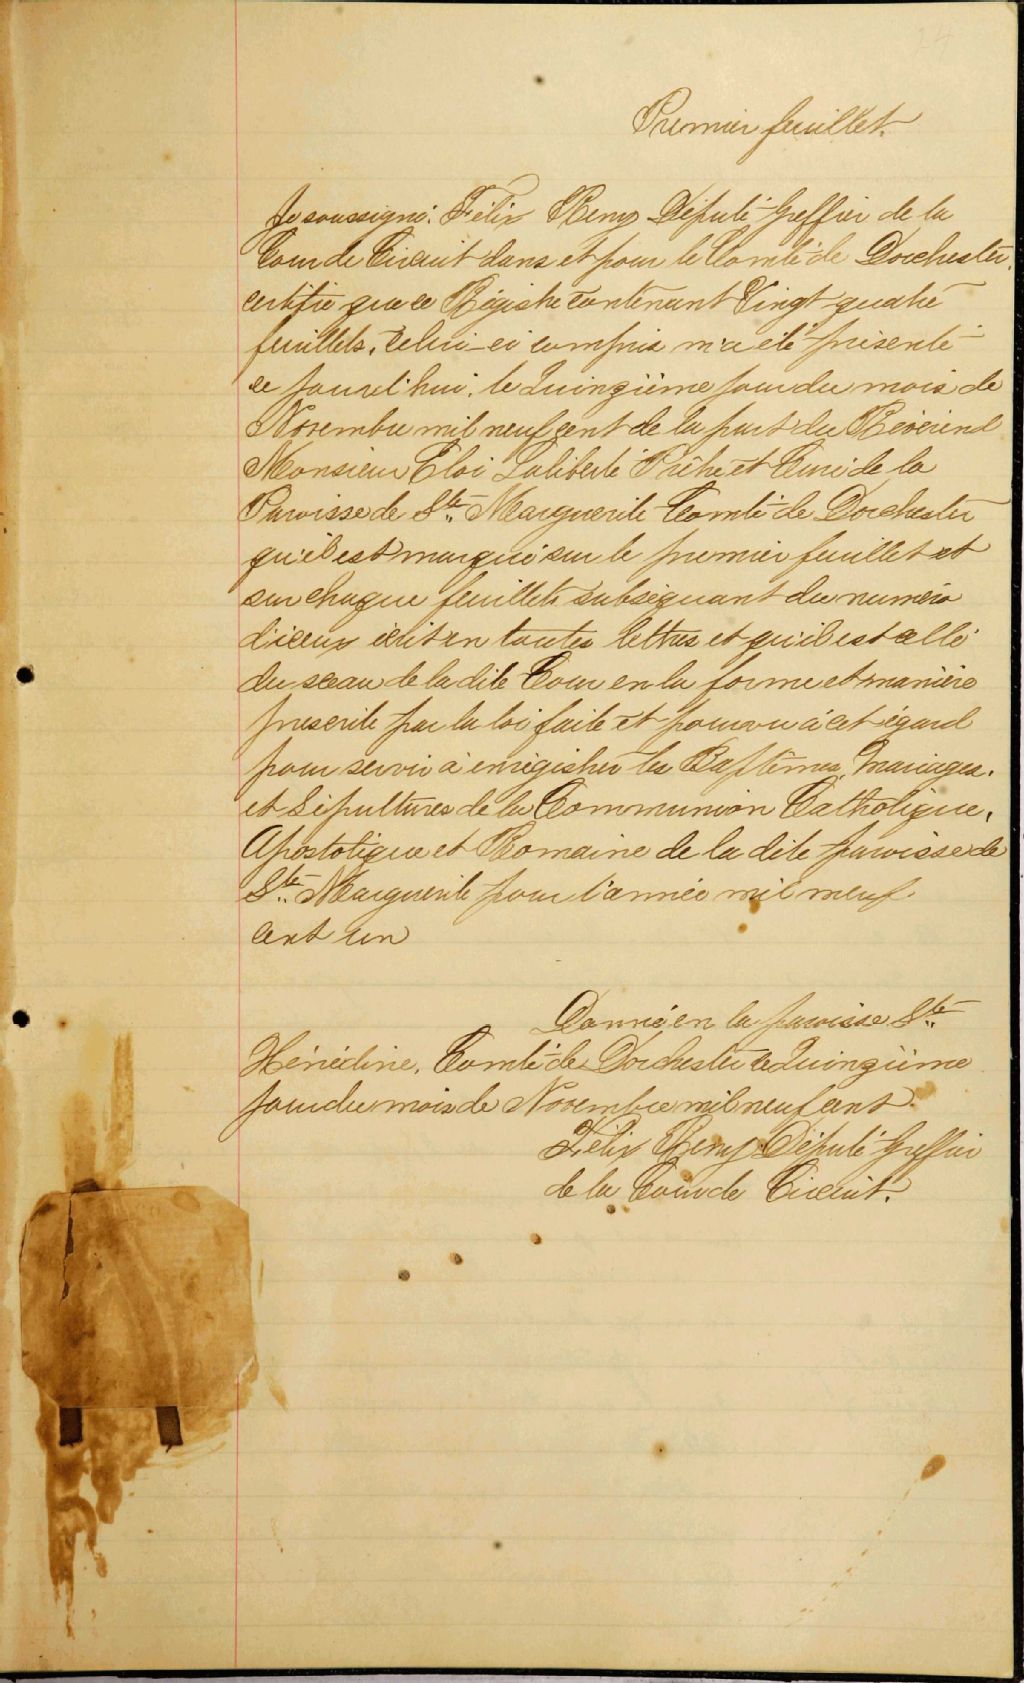 Premier feuillet.
Je soussigné. Félix Remy Député-Greffier de la
Cour de Circuit dans et pour le Comté de Dorchester,
certifie que ce Régistre contenant Vingt-quatre
feuillets, celui-ci compris m'a été présenté
ce jourd'hui, le Quinzième jour du mois de
Novembre mil neuf cent de la part du Révérend
Monsieur Eloi Laliberté Prêtre et Curé de la
Paroisse de Ste Marguerite Comté de Dorchester
qu'il est marqué sur le premier feuillet et
sur chaque feuillets subséquant du numéro
d'iceux écrit en toutes lettres et qu'il est cellé
du sceau de la dite Cour en la forme et manière
prescrite par la loi faite et pourvu à cet égard
pour servir à enrégistrer les Baptêmes, Mariages,
et Sépultures de la Communion Catholique,
Apostolique et Romaine de la dite paroisse de
Ste Marguerite pour l'année mil neuf
cent un
Donné en la paroisse Ste
Hénédine, Comté de Dorchester ce Quinzième
jour du mois de Novembre mil neuf cent.
Félix Remy Député-Greffier
de la Cour de Circuit.